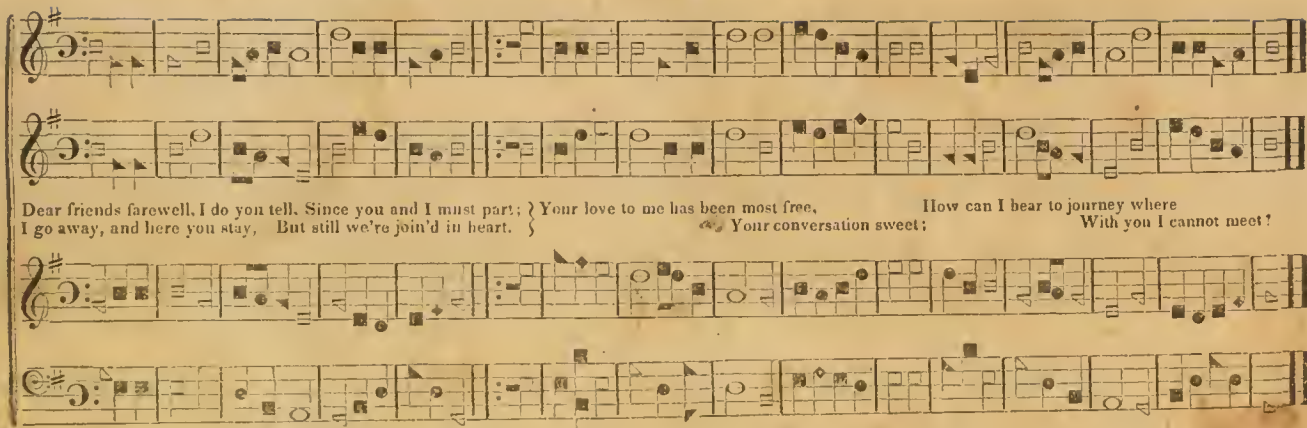 Dear friends farewell, I do you tell, Since you and I must part; } Your love to me has been most free, How can I bear to journey where
I go away, and here you stay, But still we're join'd in heart. } Your conversation sweet; With you I cannot meet?